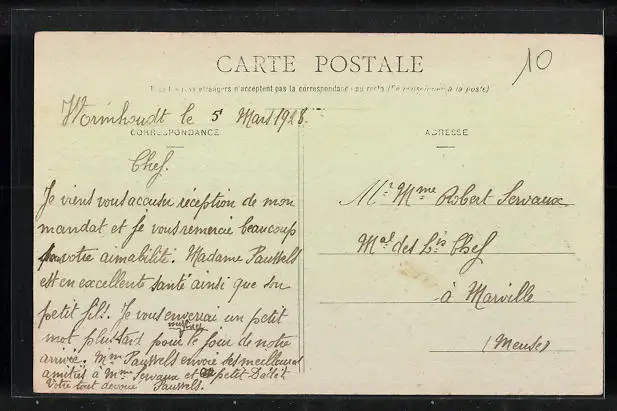 CARTE POSTALE
10
Tous les pays étrangers n'acceptent pas la correspondance au recto (Se renseigner à la poste)
Wormhoudt le 5 Mars 1928.
CORRESPONDANCE
ADRESSE
Chef.
Je viens vous accuser réception de mon
mandat et je vous remercie beaucoup
votre aimabilité. Madame Pauwels
est en excellente santé ainsi que son
petit fils. Je vous enverrai un petit
mot plus tard pour le jour de notre
arrivée. Mme Pauwels envoie ses meilleures
amitiés à Mme Servaux et petit
Votre tout dévoué Pauwels.
Mr Mme Robert Servaux
Mal des Lis Chef
à Marville
(Meuse)